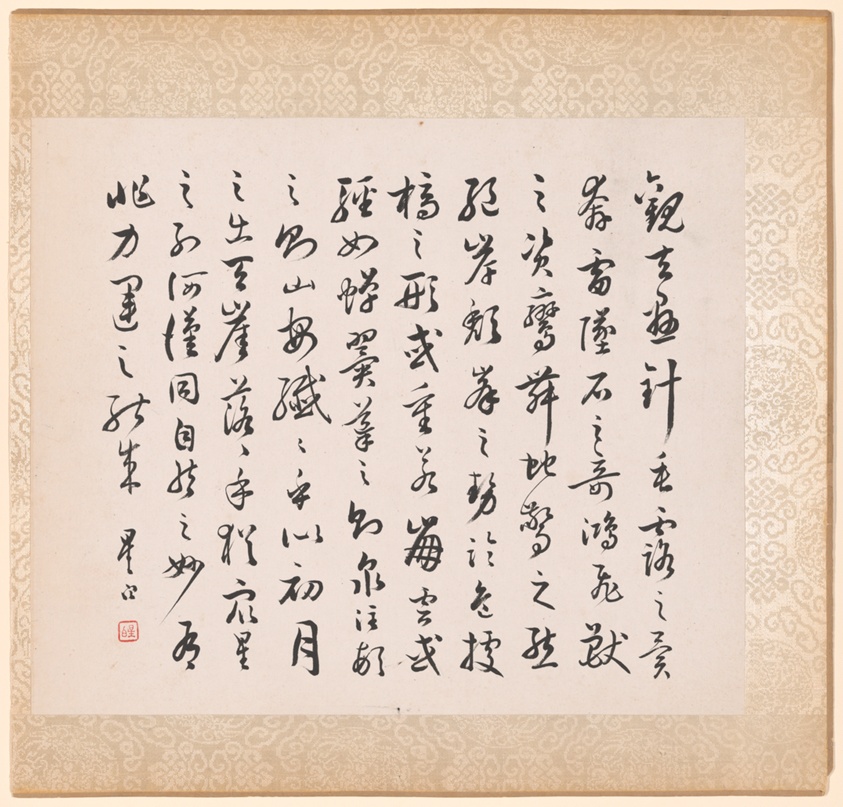 觀夫懸針垂露之異
奔雷墜石之奇鴻飛獸
之資鸞舞蛇驚之態
絕岸頹峯之勢臨危據
槁之形或重若崩雲或
輕如蟬翼導之則泉注頓
之則山安纖〻乎似初月
之出天崖落〻乎猶眾星
之列河漢同自然之妙有
非力運之能成